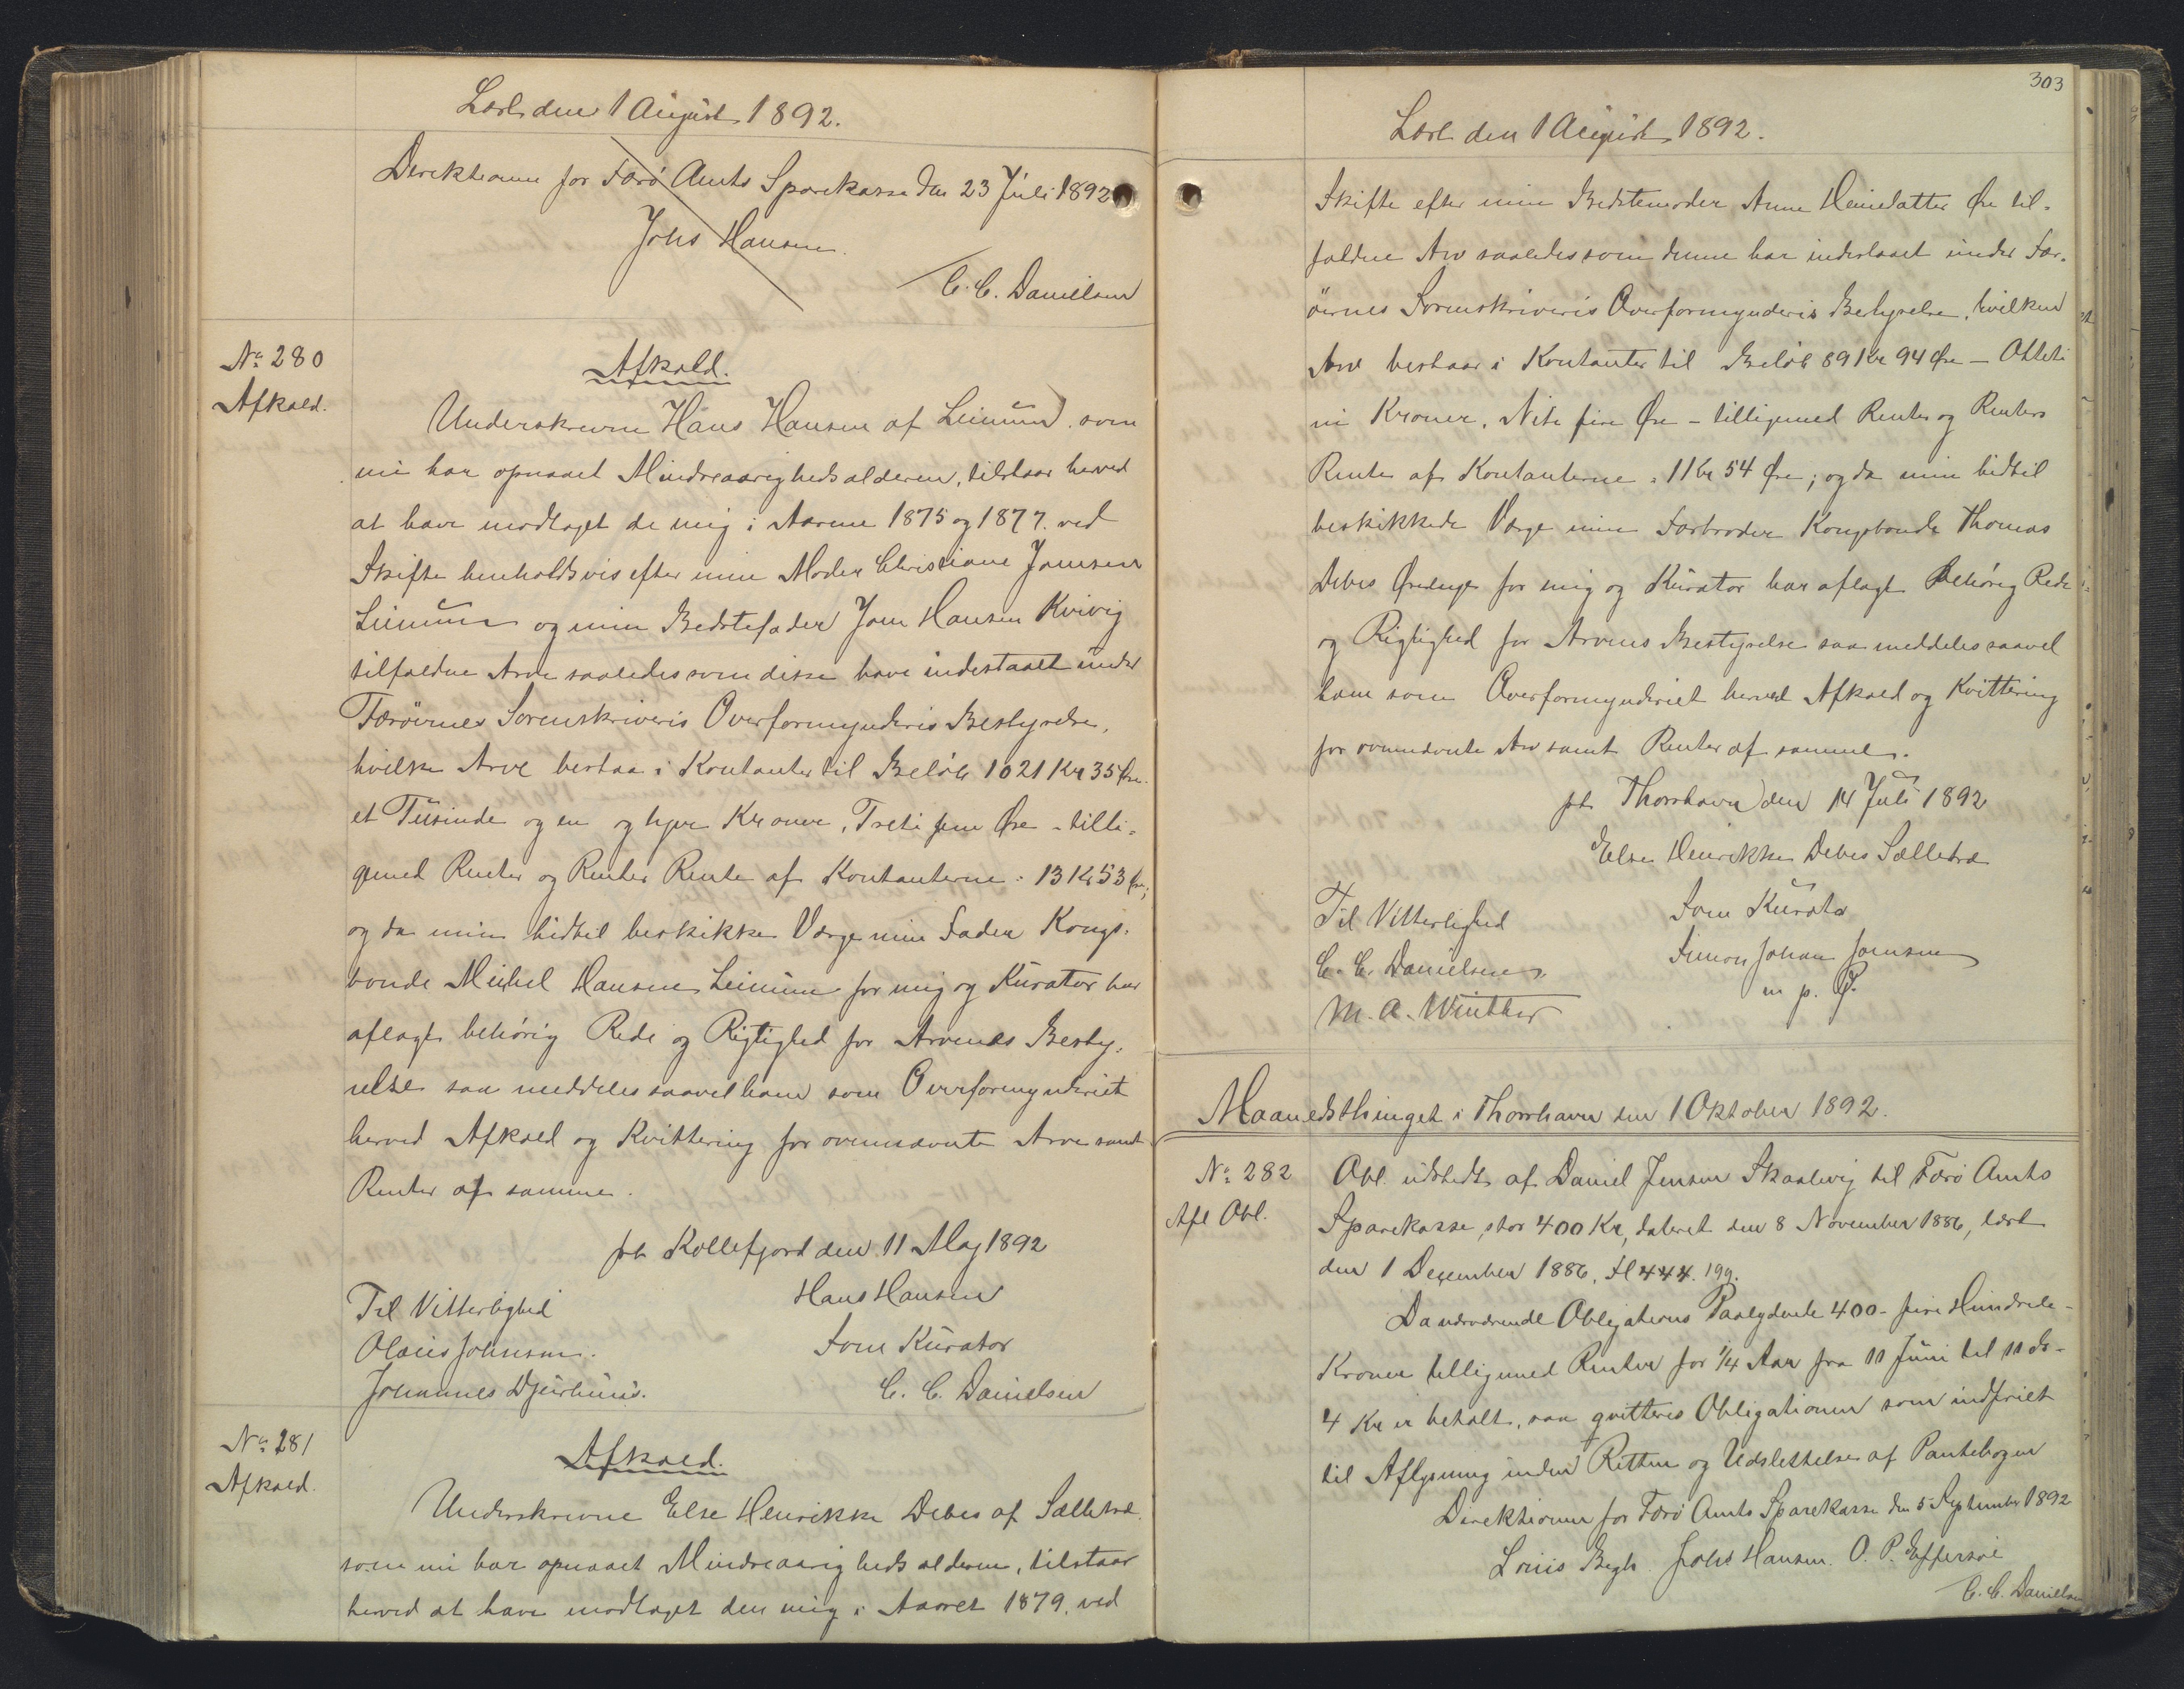 Læst den 1 August 1892.
Direktionen for Færø Amts Sparekasse den 23 Juli 1892
Johs Hansen.
C. C. Danielsen
No 280
Afkald.
Afkald.
Underskrevne Hans Hansen af Leinum, som
nu har opnaaet Mindreaarighedsalderen, tilstaar herved
at have modtaget de mig i Aarene 1875 og 1877 ved
Skifte henholdsvis efter min Moder Christiane Joensen
Leinum og min Bedstefader Joen Hansen Kvivig
tilfaldne Arve saaledes som disse have indestaaet under
Færöernes Sorenskriveris Overformynderis Bestyrelse,
hvilke Arve bestaa i Kontanter til Beløb 1021 Kr 35 Øre
et Tusinde og en og tyve Kroner, Treti fem Øre - tilli-
gemed Renter og Renters Rente af Kontanterne: 13 Kr 53 Øre;
og da min hidtil beskikke Værge min Fader Kongs-
bonde Michel Hansen Leinum for mig og Kurator har
aflagt behørig Rede og Rigtighed for Arvenes Besty-
relse saa meddeles saavel ham som Overformynderiet
herved Afkald og Kvittering for ovennævnte Arve samt
Renter af samme.
pt Kollefjord den 11 Maj 1892
Til Vitterlighed
Hans Hansen
Olaus Johnsen.
Som Kurator
Johannes Djurhuus.
C. C. Danielsen
No 281
Afkald.
Afkald.
Underskrevne Else Henrikke Debes af Sælletræ
som nu har opnaaet Mindreaarighedsalderen, tilstaar
herved at have modtaget den mig i Aaret 1879, ved
303
Læst den 1 August 1892.
Skifte efter min Bedstemoder Anne Heinedatter Øre til-
faldne Arv saaledes som denne har indestaaet under Fær-
öernes Sorenskriveris Overformynderis Bestyrelse, hvilken
Arv bestaar i Kontanter til Beløb 89 Kr 94 Øre - Otteti
ni Kroner, Niti fire Øre - tilligemed Renter og Renters
Rente af Kontanterne: 11 Kr 54 Øre; og da min hidtil
beskikkede Værge min Farbroder Kongsbonde Thomas
Debes Øredenge for mig og Kurator har aflagt Behørig Rede
og Rigtighed for Arvens Bestyrelse saa meddeles saavel
ham som Overformynderiet herved Afkald og Kvittering
for ovennævnte Arv samt Renter af samme.
pt Thorshavn den 14 Juli 1892
Else Henrikke Debes Sælletræ
Til Vitterlighed
Som Kurator
C. C. Danielsen
Simon Johan Joensen
M. A. Winther
m. p. P.
Maanedsthinget i Thorshavn den 1 Oktober 1892.
No 282
Afl Obl.
Obl. udstedt af Daniel Jensen Skaalevig til Færø Amts
Sparekasse, stor 400 Kr, dateret den 8 November 1886, læst
den 1 December 1886, H 444. 199.
Da nærværende Obligations Paalydende 400 - fire Hundrede -
Kroner tilligemed Renter for 1/4 Aar fra 11 Juni til 11 ds -
4 Kr er betalt, saa qvitteres Obligationen som indfriet
til Aflysning inden Retten og Udslettelse af Pantebogen
Direktionen for Færø Amts Sparekasse den 5 September 1892
Louis Bergh. Johs Hansen. O. P. Effersøe
C. C. Danielsen